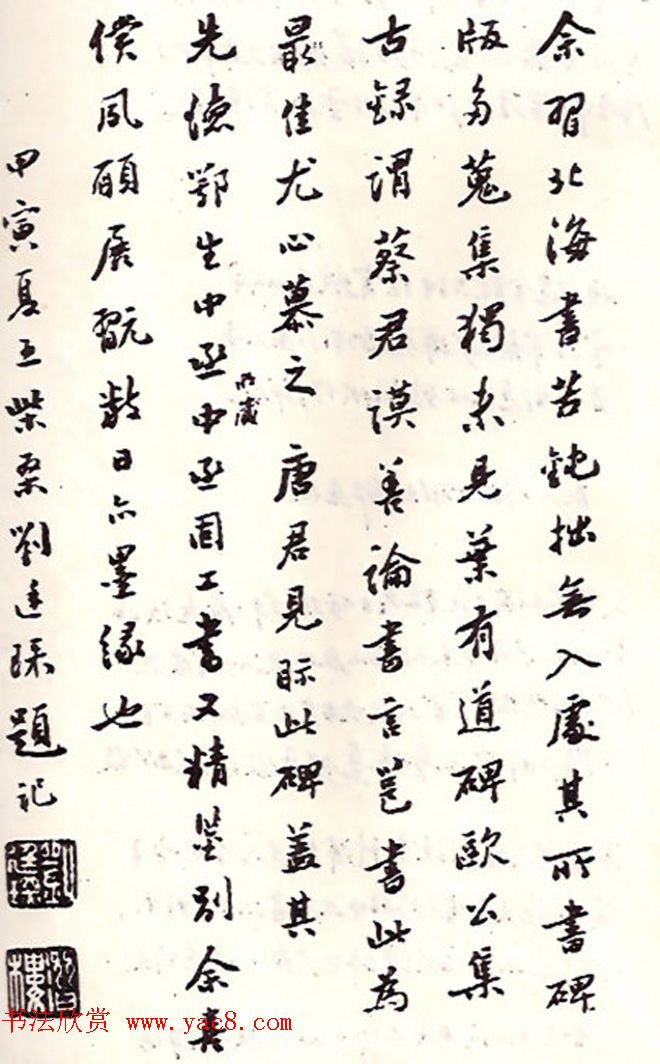 余習北海書苦鈍拙無入處其所書碑
版多蒐集獨未見葉有道碑歐公集
古錄謂蔡君謨善論書言邕書此為
最佳尤心慕之 唐君見眎此碑蓋其
先德鄂生中丞所藏中丞固工書又精鑒別余喜
償夙願展翫數日亦墨緣也
甲寅夏五柴桑劉廷琛題記
書法欣賞 www.yac8.com